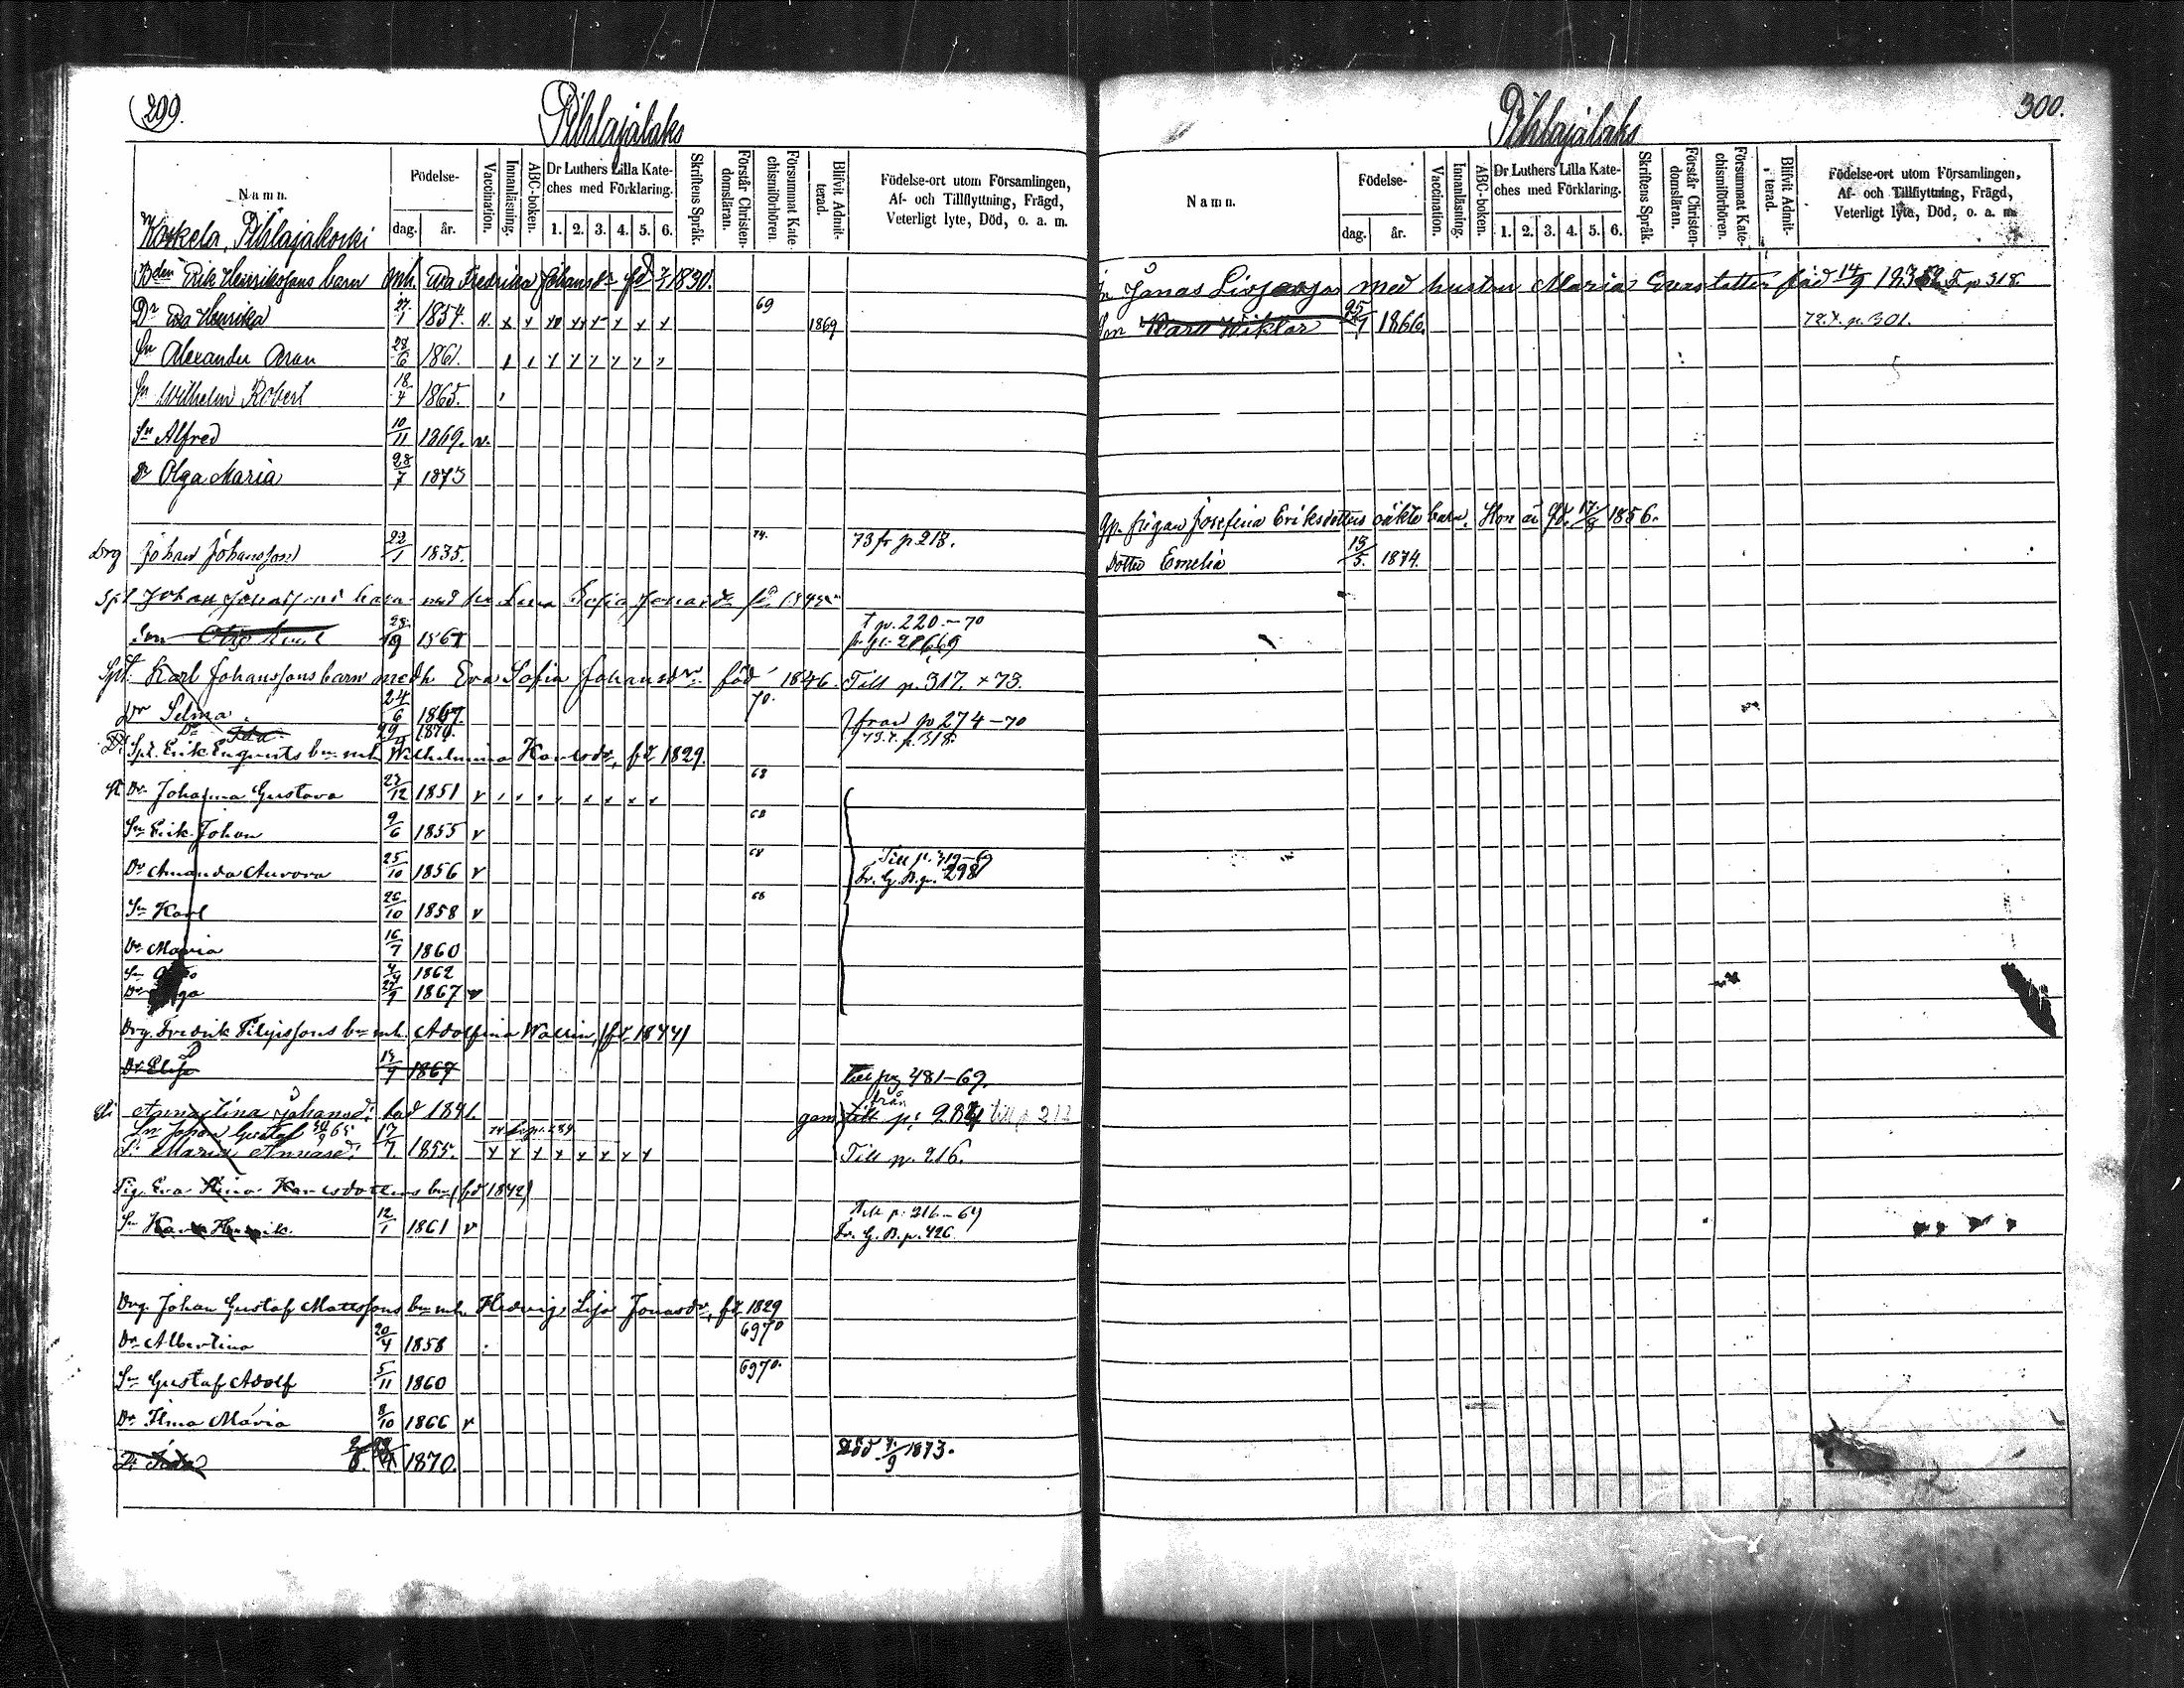 299.
Pihlajalaks
Namn.
Födelse-
dag.
år.
Vaccination.
Innanläsning.
ABC-boken.
Dr Luthers Lilla Kate-
ches med Förklaring.
1. 2. 3. 4. 5. 6.
Skriftens Språk.
Förstår Christen-
domsläran.
Försummat Kate-
chismiförhören.
Blifvit Admit-
terad.
Födelse-ort utom Församlingen,
Af- och Tillflyttning, Frägd,
Veterligt lyte, Död, o. a. m.
Koskela, Pihlajakoski
Bden Erik Henrikssons barn mh. Eva Fredrika Johansdr fd 1830.
Dr Eva Henrika 27/1 1854. 69 1869
Sn Alexander Aran 28/6 1861.
Sn Wilhelm Robert 18/4 1865.
Sn Alfred 10/11 1869. v.
Dr Olga Maria 28/7 1873
Drg Johan Johansson 22/1 1835. 74. 73 fr p 218.
Spt Johan Johanssons barn med hu Lena Sofia
Son 1867 † p. 220.-70
Spt. Karl Johanssons barn medh Eva Sofia Johansdr. född 1846. Till p. 317. + 73.
Dr Selma. 24/6 1867. 70. från p 274-70
Dr Ida 1870. 73. t. p. 318.
Spt. Erik Enqvists bn mh Wilhelmina Karlsdr, fd 1829.
Dr Johanna Gustava 27/12 1851 v 68
Sn Erik Johan 9/6 1855 v 68
Dr Amanda Aurora 25/10 1856 v 68 Till p. 319-69
Fr. G. B. p. 298
Sn Karl 26/10 1858 v 68
Dr Maria 16/7 1860
Sn Otto 4/4 1862
Dr 1867 v
Drg. Fredrik Filipssons bn mh. Adolfina Wallin, (fd. 1844)
Dr Elisa 13/9 1867 Till pg 481-69.
Anna Stina Johansd: född 1841. från
till p: 284
Sn Johan Gustaf 65
Dr Maria Annasd: 17/7 1855. x x x x x x x x Till p. 216.
Pig. Eva Stina Karlsdotters bn (fd 1842)
Sn Karl Henrik. 12/1 1861 v Till p. 216-69
Fr. G. B. p. 426
Drg. Johan Gustaf Mattssons bn mh. Hedvig Lisa Jonasdr, fd 1829
Dr Albertina 20/4 1858 6970
Sn Gustaf Adolf 5/11 1860 6970.
Dr Ilma Maria 8/10 1866 v
Dr Ida 1870. Död 7/9 1873.
300.
Pihlajalaks
Namn.
Födelse-
dag.
år.
Vaccination.
Innanläsning.
ABC-boken.
Dr Luthers Lilla Kate-
ches med Förklaring.
1. 2. 3. 4. 5. 6.
Skriftens Språk.
Förstår Christen-
domsläran.
Försummat Kate-
chismiförhören.
Blifvit Admit-
terad.
Födelse-ort utom Församlingen,
Af- och Tillflyttning, Frägd,
Veterligt lyte, Död, o. a. m.
Jonas med hustru Maria född 14/9 p 318.
Sn Karl Wiktor 25/7 1866. 72. t. p. 301.
Gp. pigan Josefina Eriksdotters oäkta barn. Hon är fd. 17/8 1856.
Dotter Emelia 13/5. 1874.